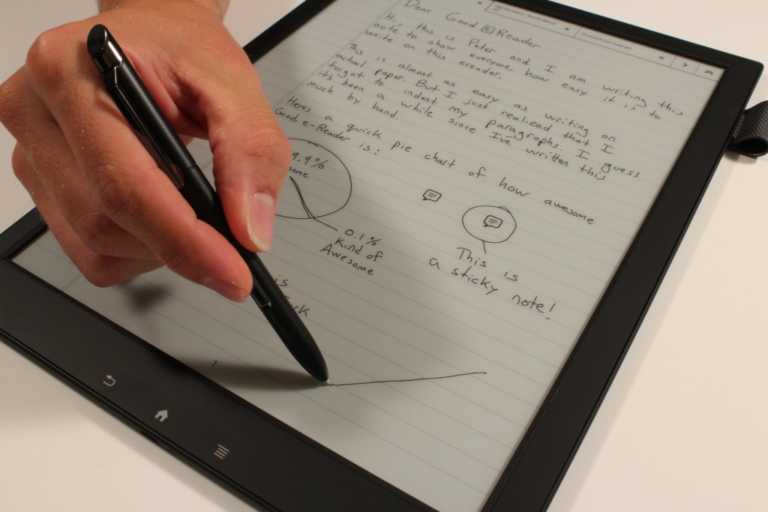 Dear Good e Reader
Hi, this is Peter and I am writing this
note to show everyone how easy it is to
write on this ereader.
This is almost as easy as writing on
actual paper. But I just realized that I
forgot to indent my paragraphs. I guess
it's been a while since I've written this
much by hand.
Here's a quick pie chart of how awesome
Good e-Reader is:
0.1%
Kind of
Awesome
This is
a sticky note!
is